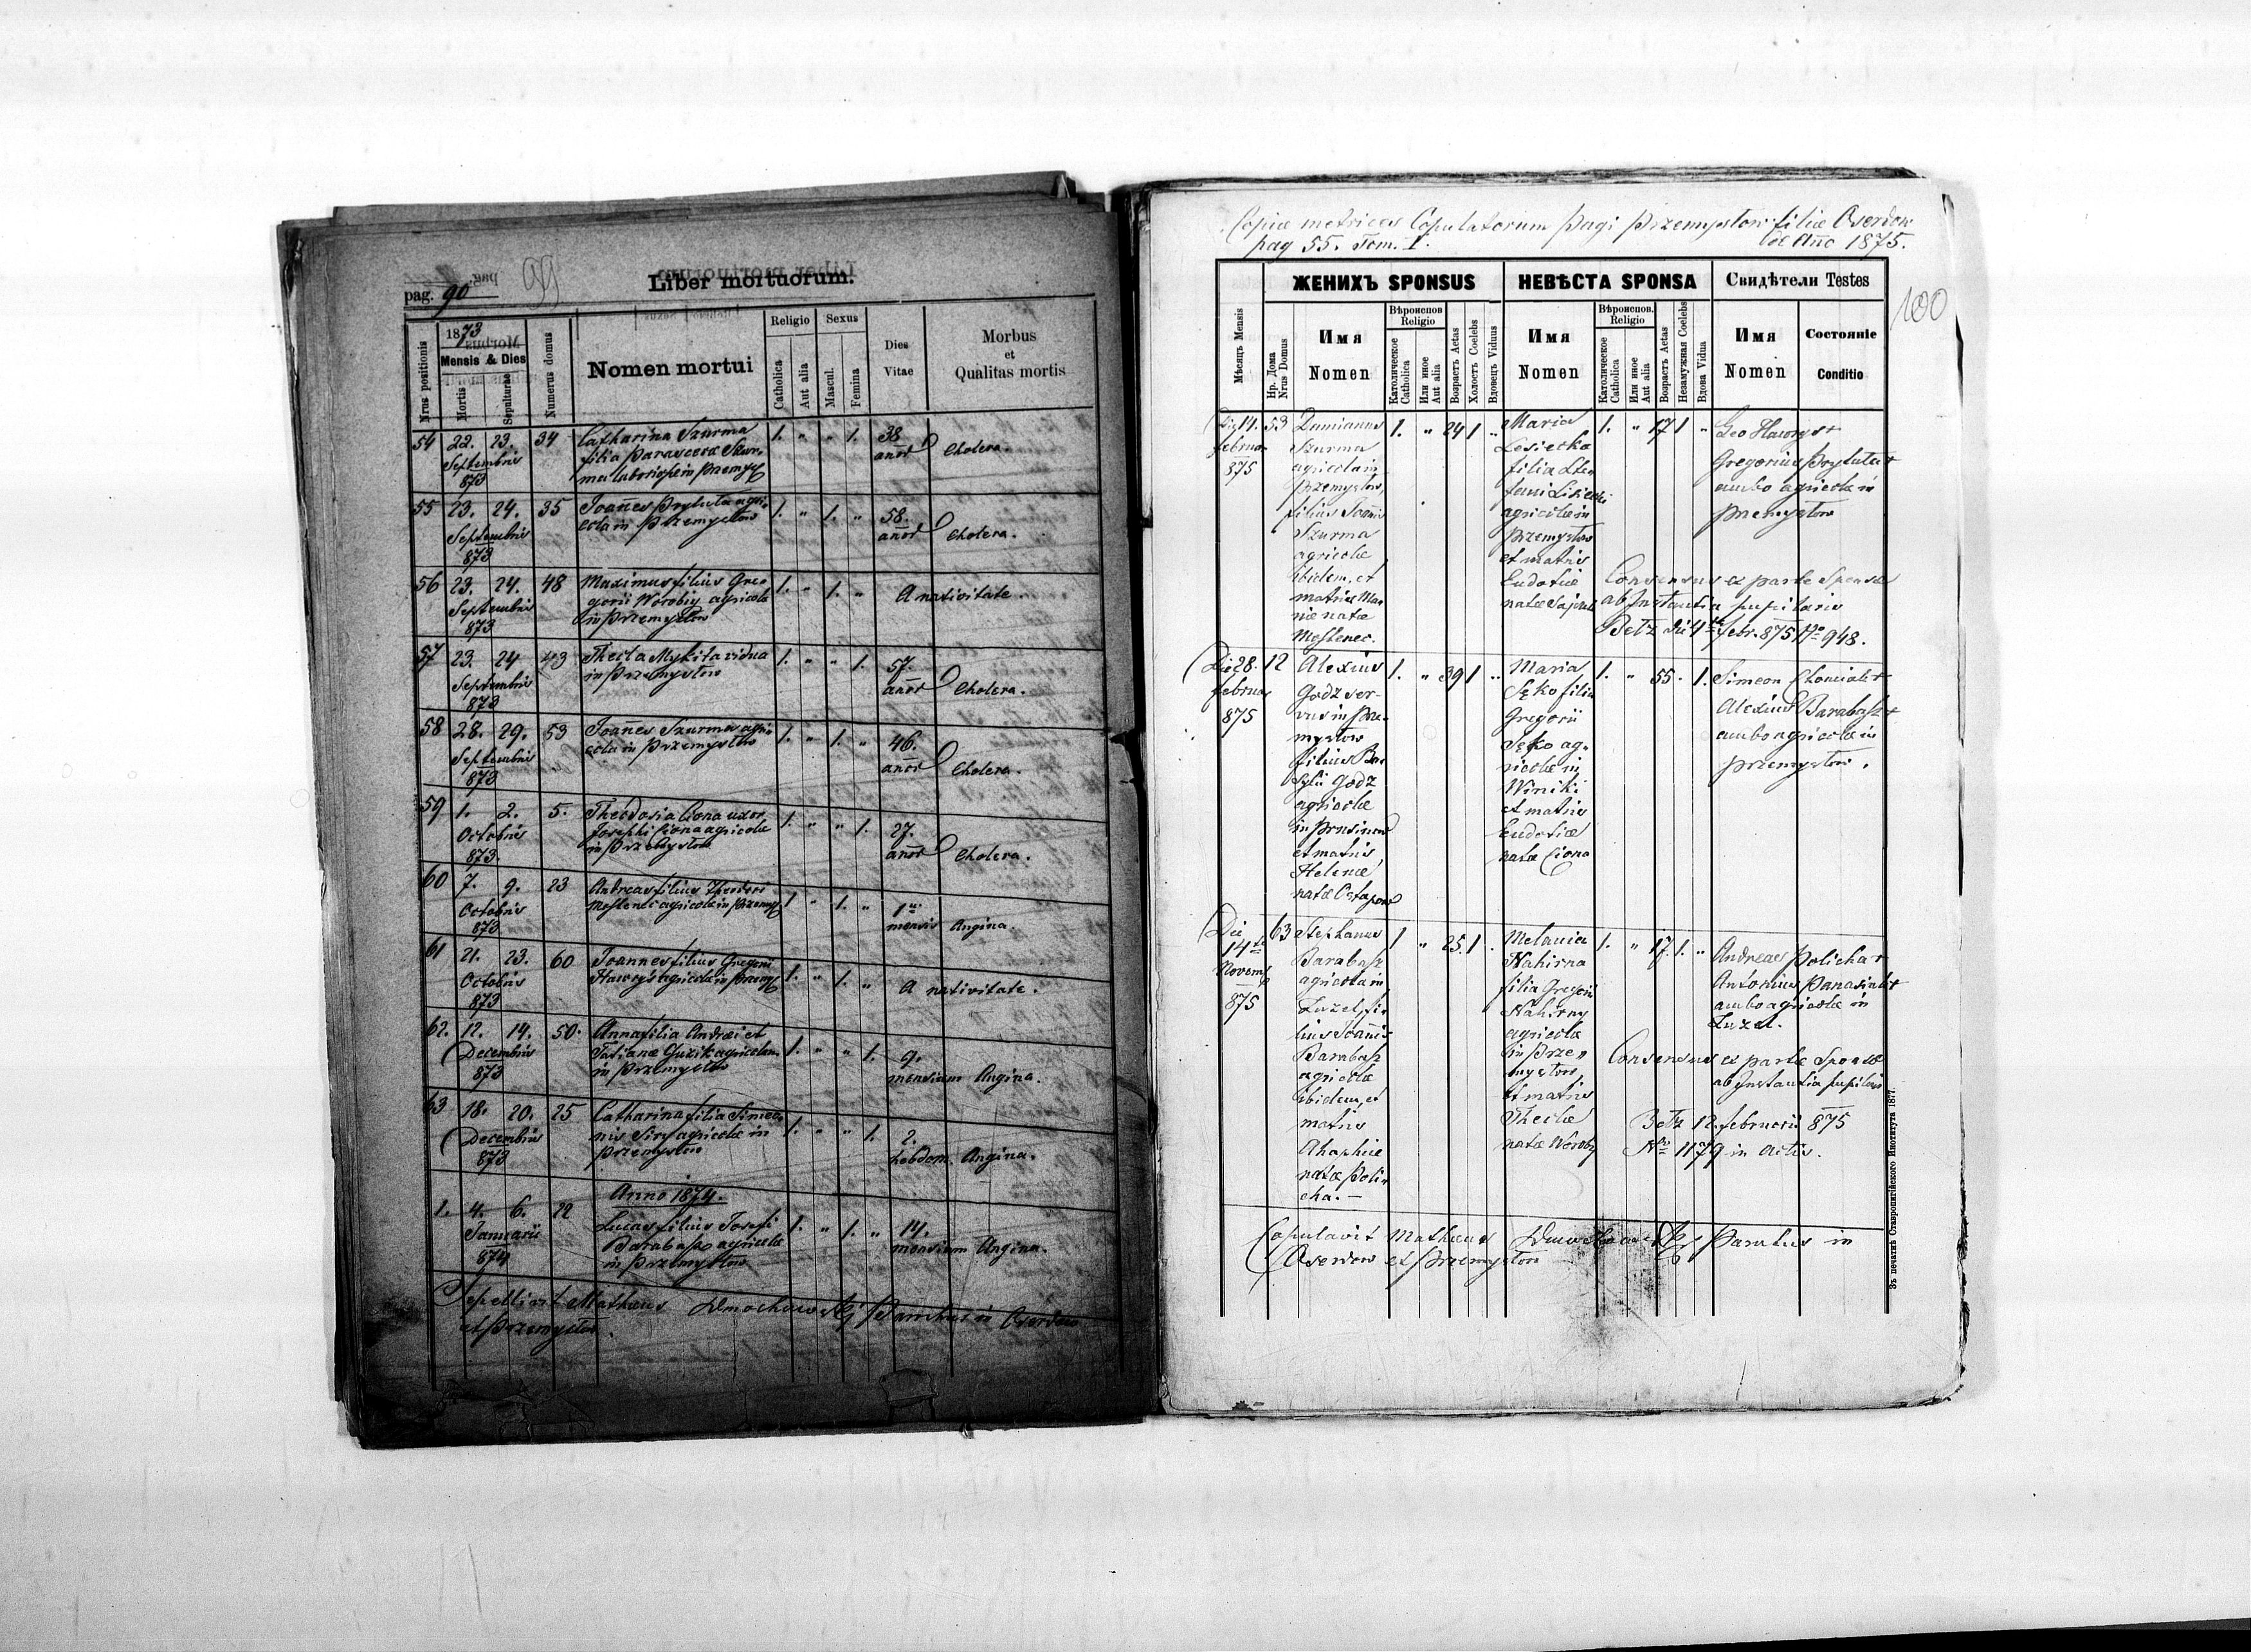 pag. 90
99
Liber mortuorum.
Nrus positionis
1873
Mensis & Dies
Mortis
Sepulturae
Numerus domus
Nomen mortui
Religio
Catholica
Aut alia
Sexus
Mascul.
Femina
Dies
Vitae
Morbus
et
Qualitas mortis
54 22. 23. 34 Catharina Szurma 1. " " 1. 38
Septembris filia Parascevae Szur- anor Cholera.
873 ma laboriosae in Przemy
55 23. 24. 35 Joannes Prytuta agri- 1. " 1. " 58.
Septembris cola in Przemysłow anor Cholera.
873
56 23. 24. 48 Maximus filius Gre- 1. " 1. " A nativitate.
Septembris gorii Worobij agricolae
873 in Przemysłow
57 23. 24 43 Thecla Mykita vidua 1. " " 1. 57.
Septembris in Przemysłow anor Cholera.
873
58 28. 29. 53 Joannes Szurma agri- 1. " 1. " 46.
Septembris cola in Przemysłow anor Cholera.
873
59 1. 2. 5. Theodosia Ciona uxor 1. " " 1. 27.
Octobris Josephi Ciona agricolae anor Cholera.
873. in Przemysłow
60 7. 9. 23 Andreas filius Theodori 1 " 1. " 1
Octobris agricolae in Przemy mensis Angina.
873
61 21. 23. 60 Joannes filius Gregorii 1. " 1. " A nativitate.
Octobris Hawryś agricolae in Przemy
873
62. 12. 14. 50. Anna filia Andreae et 1. " " 1. 9.
Decembris Tatianae Guzik agricolar. mensium Angina.
873 in Przemysłow
63 18. 20. 25 Catharina filia Simeo- 1. " " 1. 2.
Decembris nis agricolae in hebdom. Angina.
873 Przemysłow
Anno 1874.
1. 4. 6. 22 Lucas filius Josefi 1. " 1. " 14.
Januarii Barabasz agricolae mensium Angina.
874 in Przemysłow
Sepelivit Mathaeus Dmochowskij Parochus in Oserdow
et Przemysłow.
Copia metrices Copulatorum pagi Przemysłow filiae Oserdow
pag 55. Tom. I. de Anno 1875.
100
Мѣсяцъ Mensis
Нр. Дома
Nrus Domus
ЖЕНИХЪ SPONSUS
Имя
Nomen
Вѣроиспов.
Religio
Католическое
Catholica
Или иное
Aut alia
Возрастъ Aetas
Холостъ Coelebs
Вдовецъ Viduus
НЕВѢСТА SPONSA
Имя
Nomen
Вѣроиспов.
Religio
Католическое
Catholica
Или иное
Aut alia
Возрастъ Aetas
Незамужная Coelebs
Вдова Vidua
Свидѣтели Testes
Имя
Nomen
Состояніе
Conditio
Die 14.
februar
875
53
Damianus
Szurma
agricola in
Przemysłow,
filius Joannis
Szurma
agricolae
ibidem, et
matris Ma-
riae natae
1. " 24 1 "
Maria
Lisiecka
filia Ste-
fani Lisiecki
agricolae in
Przemysłow
et matris
Eudociae
natae
1. " 17 1 "
Geo Hawryś +
Gregorius Prytuta +
ambo agricolae in
Przemysłow
Consensus ex parte Sponsae
ab Instantia pupilaris
Betz die 4 febr. 875 No 948.
Die 28.
februar
875
12
Alexius
Godz ser-
vus in Prze-
mysłow
filius Ba-
sylii Godz
agricolae
in
et matris
Helenae
natae Ostapow
1. " 39 1 "
Maria
Sęko filia
Gregorii
Sęko ag-
ricolae in
Winiki
et matris
Eudociae
natae Ciona
1. " 55. . 1.
Simeon Chomiak +
Alexius Barabasz +
ambo agricolae in
Przemysłow.
Die
14
Novemb
875
63
Stephanus
Barabasz
agricola in
fi-
lius Joannis
Barabasz
agricolae
ibidem, et
matris
Ahaphiae
natae Poli-
cha. —
1 " 25. 1 .
Melania
Nahirna
filia Gregorii
Nahirny
agricolae
in Prze-
mysłow,
et matris
Theclae
natae Worobij
1. " 17. 1. "
Andreas Policha +
Antonius Panasiuk +
ambo agricolae in
Consensus ex parte Sponsae
ab Instantia pupilari
Betz 12. februarii 875
No 1179 in Actis.
Copulavit Mathaeus Dmochowskij Parochus in
Oserdow et Przemysłow
Зъ печатнѣ Ставропигійского Института 1877.